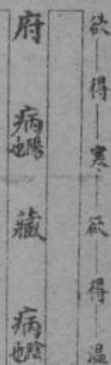 欲得寒欲得温
府病陽也藏病陰也